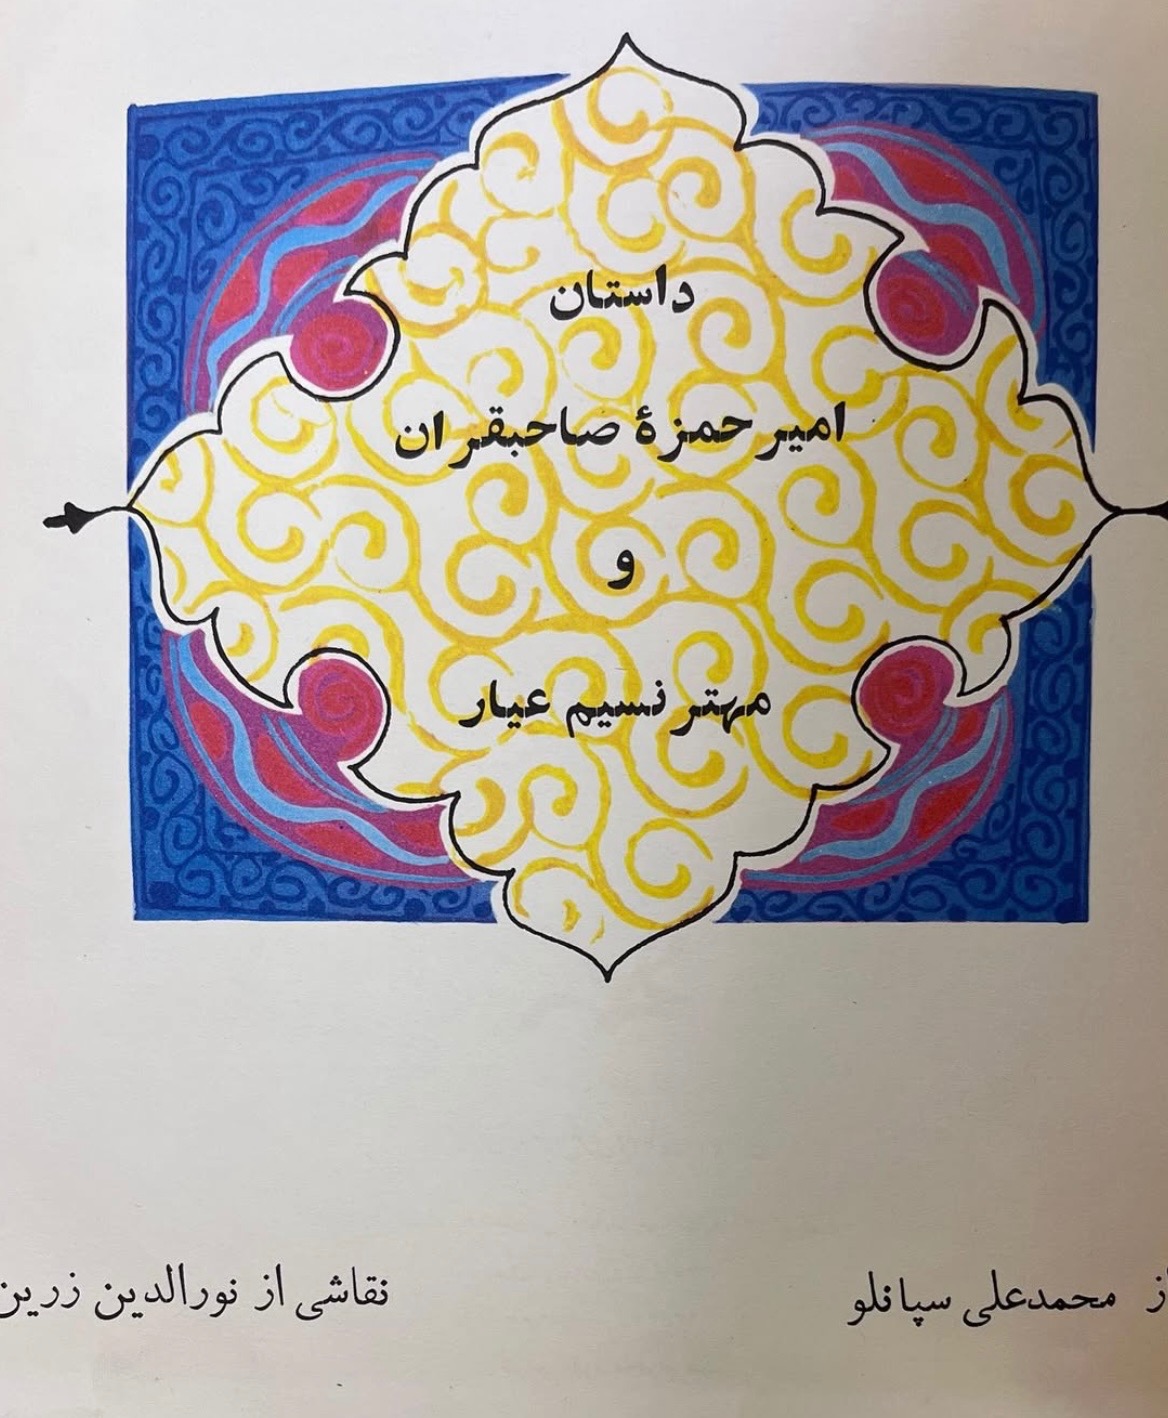 داستان
امیر حمزهٔ صاحبقران
و
مهتر نسیم عیار
از محمدعلی سپانلو
نقاشی از نورالدین زرین